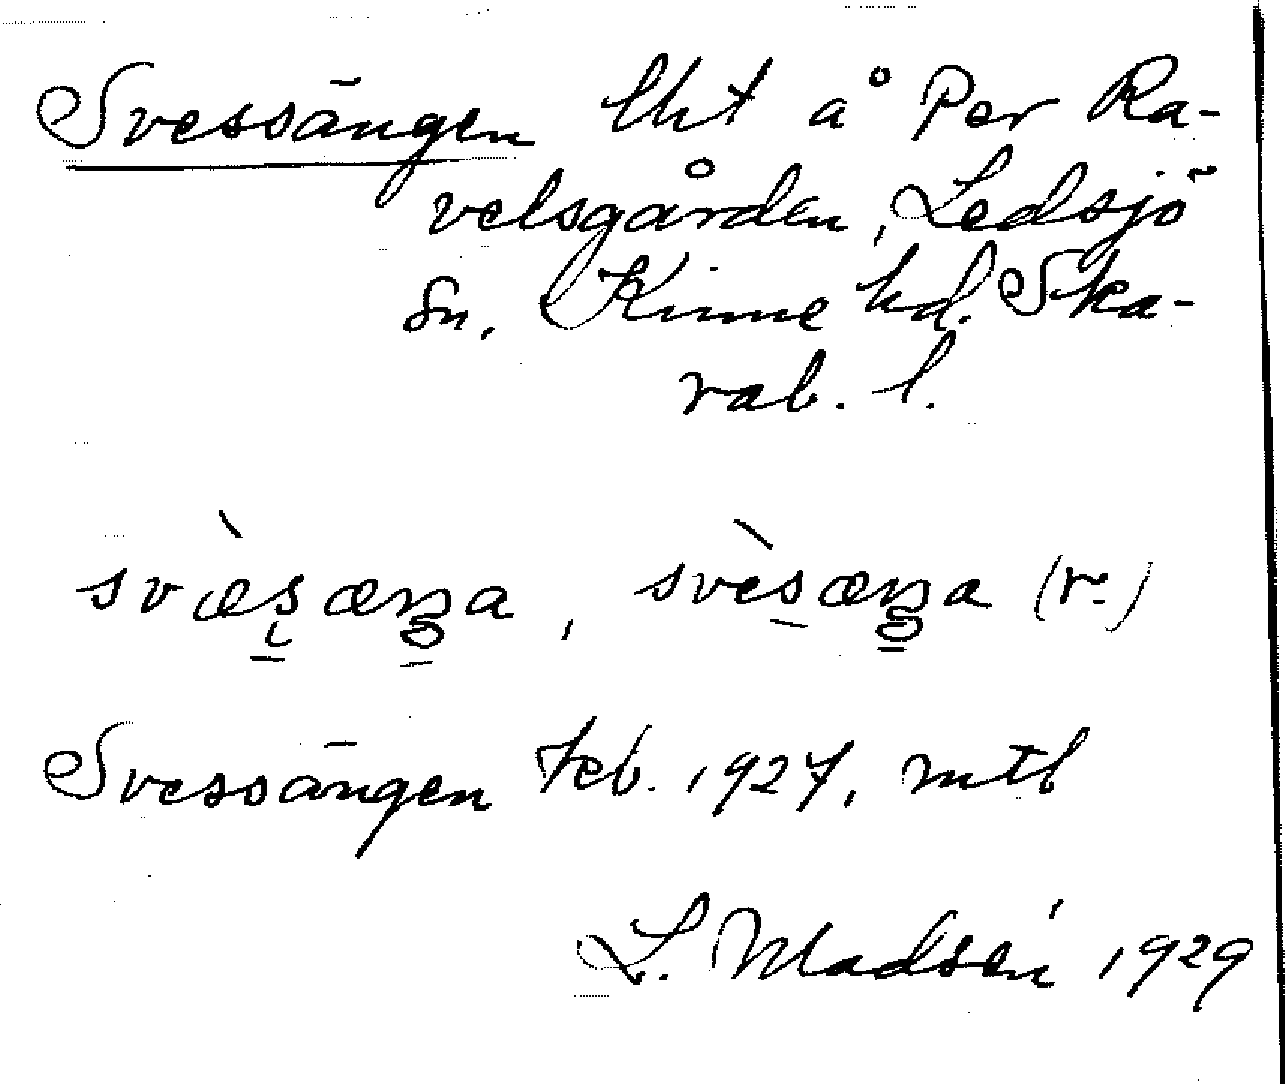 Svessängen lht å Per Ra-
velsgården, Ledsjö
sn, Kinne hd. Ska-
rab. l.
svæ̀sæŋa, svèsæŋa (r.)
Svessängen feb. 1927, mtb
L. Madsén 1929